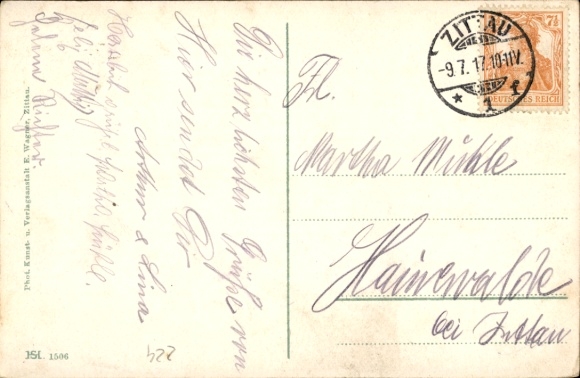 Die herzlichsten Grüße von
Hier sendet Dir
Arthur & Lina
Frl.
Martha Mühle
Hainewalde
bei Zittau
ZITTAU
-9.7.17.10-11V.
* 1 f
7½
DEUTSCHES REICH
Phot. Kunst- u. Verlagsanstalt E. Wagner, Zittau.
JSL 1506
224